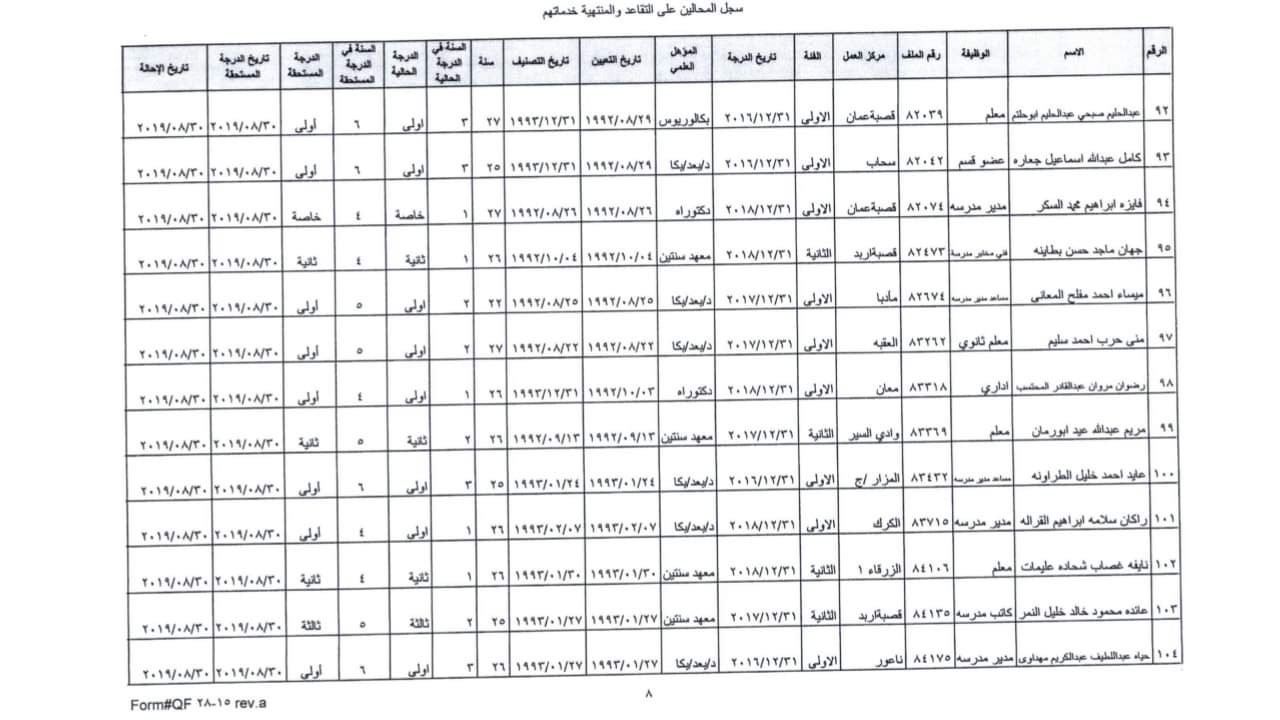 سجل المحالين على التقاعد والمنتهية خدماتهم
الرقم الاسم الوظيفة رقم الملف مركز العمل الفئة تاريخ الدرجة المؤهل العلمي تاريخ التعيين تاريخ التصنيف سنة السنة في الدرجة الحالية الدرجة الحالية السنة في الدرجة المستحقة الدرجة المستحقة تاريخ الدرجة المستحقة تاريخ الإحالة
٩٢ عبدالحليم صبحي عبدالحليم ابوحلتم معلم ٨٢٠٣٩ قصبةعمان الاولى ٢٠١٦/١٢/٣١ بكالوريوس ١٩٩٢/٠٨/٢٩ ١٩٩٣/١٢/٣١ ٢٧ ٣ اولى ٦ أولى ٢٠١٩/٠٨/٣٠ ٢٠١٩/٠٨/٣٠
٩٣ كامل عبدالله اسماعيل جعاره عضو قسم ٨٢٠٤٢ سحاب الاولى ٢٠١٦/١٢/٣١ د/بعد/بكا ١٩٩٢/٠٨/٢٩ ١٩٩٣/١٢/٣١ ٢٥ ٣ اولى ٦ أولى ٢٠١٩/٠٨/٣٠ ٢٠١٩/٠٨/٣٠
٩٤ فايزه ابراهيم محمد السكر مدير مدرسه ٨٢٠٧٤ قصبةعمان الاولى ٢٠١٨/١٢/٣١ دكتوراه ١٩٩٢/٠٨/٢٦ ١٩٩٢/٠٨/٢٦ ٢٧ ١ خاصة ٤ خاصة ٢٠١٩/٠٨/٣٠ ٢٠١٩/٠٨/٣٠
٩٥ جهان ماجد حسن بطاينه فني مختبر مدرسة ٨٢٤٧٣ قصبةاربد الثانية ٢٠١٨/١٢/٣١ معهد سنتين ١٩٩٢/١٠/٠٤ ١٩٩٢/١٠/٠٤ ٢٦ ١ ثانية ٤ ثانية ٢٠١٩/٠٨/٣٠ ٢٠١٩/٠٨/٣٠
٩٦ ميساء احمد مفلح المعانى مساعد مدير مدرسه ٨٢٦٧٤ مأدبا الاولى ٢٠١٧/١٢/٣١ د/بعد/بكا ١٩٩٢/٠٨/٢٥ ١٩٩٢/٠٨/٢٥ ٢٢ ٢ اولى ٥ أولى ٢٠١٩/٠٨/٣٠ ٢٠١٩/٠٨/٣٠
٩٧ منى حرب احمد سليم معلم ثانوي ٨٣٢٦٢ العقبه الاولى ٢٠١٧/١٢/٣١ د/بعد/بكا ١٩٩٢/٠٨/٢٢ ١٩٩٢/٠٨/٢٢ ٢٧ ٢ اولى ٥ أولى ٢٠١٩/٠٨/٣٠ ٢٠١٩/٠٨/٣٠
٩٨ رضوان مروان عبدالقادر المحتسب اداري ٨٣٣١٨ معان الاولى ٢٠١٨/١٢/٣١ دكتوراه ١٩٩٢/١٠/٠٣ ١٩٩٣/١٢/٣١ ٢٦ ١ اولى ٤ أولى ٢٠١٩/٠٨/٣٠ ٢٠١٩/٠٨/٣٠
٩٩ مريم عبدالله عيد ابورمان معلم ٨٣٣٦٩ وادي السير الثانية ٢٠١٧/١٢/٣١ معهد سنتين ١٩٩٢/٠٩/١٣ ١٩٩٢/٠٩/١٣ ٢٦ ٢ ثانية ٥ ثانية ٢٠١٩/٠٨/٣٠ ٢٠١٩/٠٨/٣٠
١٠٠ عايد احمد خليل الطراونه مساعد مدير مدرسه ٨٣٤٣٢ المزار /ج الاولى ٢٠١٦/١٢/٣١ د/بعد/بكا ١٩٩٣/٠١/٢٤ ١٩٩٣/٠١/٢٤ ٢٥ ٣ اولى ٦ أولى ٢٠١٩/٠٨/٣٠ ٢٠١٩/٠٨/٣٠
١٠١ راكان سلامه ابراهيم القراله مدير مدرسه ٨٣٧١٥ الكرك الاولى ٢٠١٨/١٢/٣١ د/بعد/بكا ١٩٩٣/٠٢/٠٧ ١٩٩٣/٠٢/٠٧ ٢٦ ١ اولى ٤ أولى ٢٠١٩/٠٨/٣٠ ٢٠١٩/٠٨/٣٠
١٠٢ نايفه غصاب شحاده عليمات معلم ٨٤١٠٦ الزرقاء ١ الثانية ٢٠١٨/١٢/٣١ معهد سنتين ١٩٩٣/٠١/٣٠ ١٩٩٣/٠١/٣٠ ٢٦ ١ ثانية ٤ ثانية ٢٠١٩/٠٨/٣٠ ٢٠١٩/٠٨/٣٠
١٠٣ عائده محمود خالد خليل النمر كاتب مدرسه ٨٤١٣٥ قصبةاربد الثانية ٢٠١٧/١٢/٣١ معهد سنتين ١٩٩٣/٠١/٢٧ ١٩٩٣/٠١/٢٧ ٢٥ ٢ ثالثة ٥ ثالثة ٢٠١٩/٠٨/٣٠ ٢٠١٩/٠٨/٣٠
١٠٤ حياه عبداللطيف عبدالكريم مهداوى مدير مدرسه ٨٤١٧٥ ناعور الاولى ٢٠١٦/١٢/٣١ د/بعد/بكا ١٩٩٣/٠١/٢٧ ١٩٩٣/٠١/٢٧ ٢٦ ٣ اولى ٦ أولى ٢٠١٩/٠٨/٣٠ ٢٠١٩/٠٨/٣٠
٨
Form#QF ٢٨-١٥ rev.a